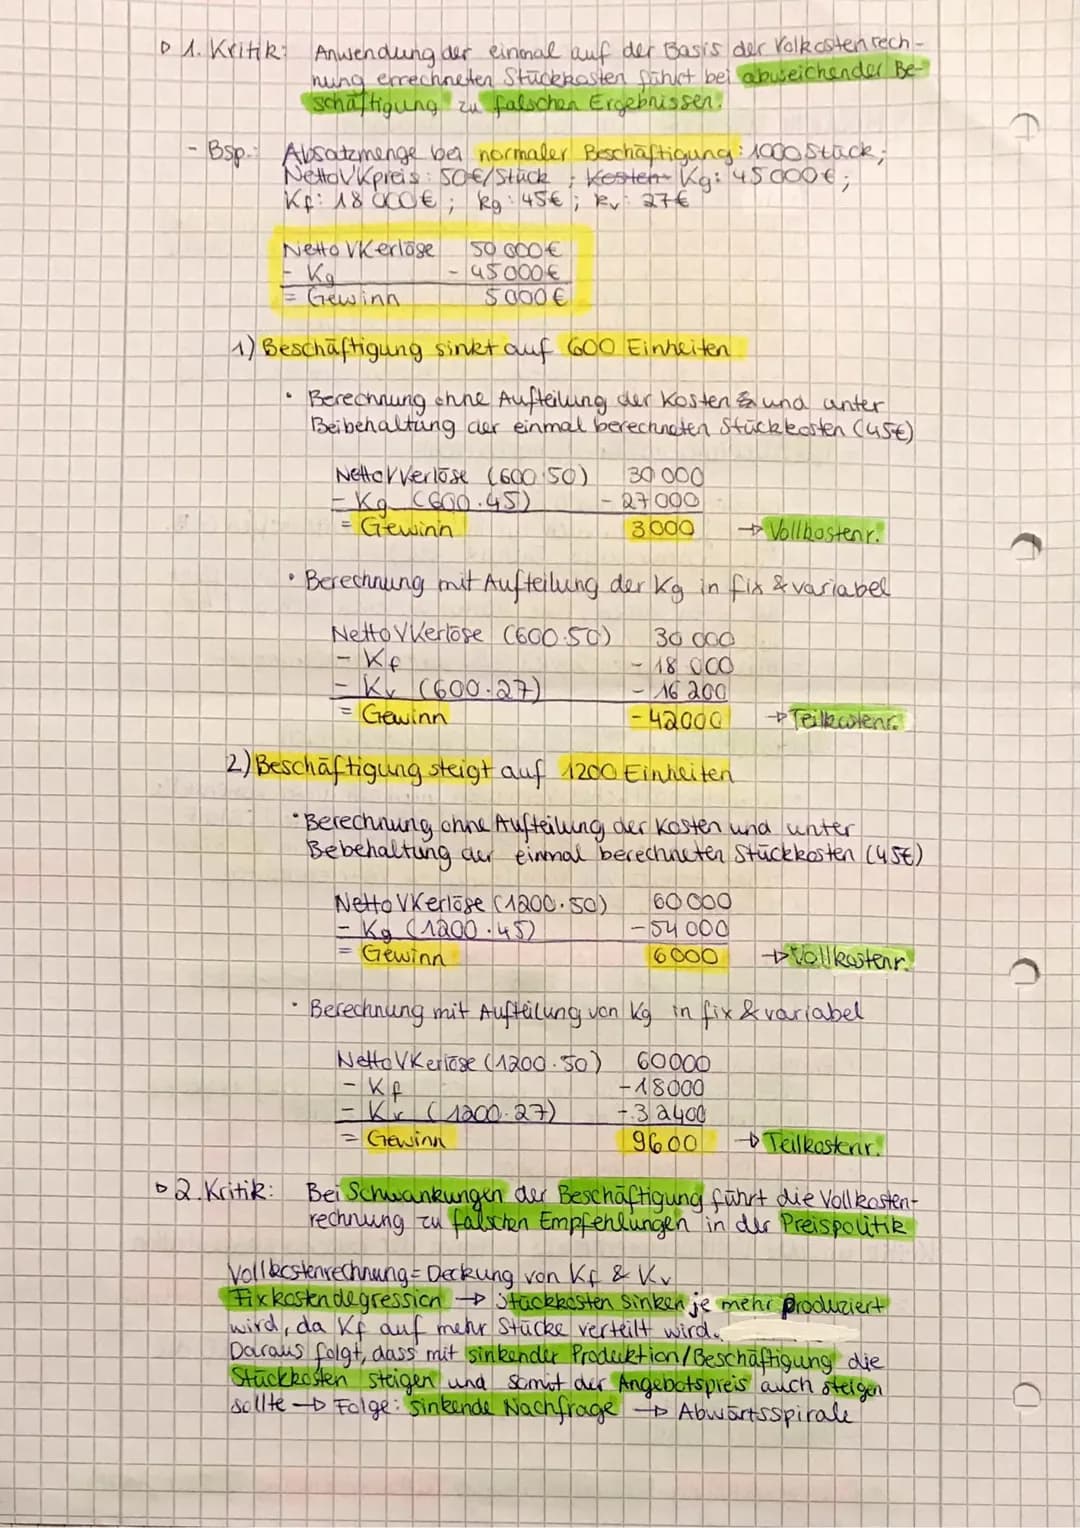 ▷ 1. Kritik: Anwendung der einmal auf der Basis der Vollkostenrech-
nung errechneten Stückkosten führt bei abweichender Be-
schäftigung zu falschen Ergebnissen.
- Bsp.: Absatzmenge bei normaler Beschäftigung: 1000 Stück;
Netto VKpreis: 50€/Stück ; Kosten Kg: 45000€;
Kf: 18 000€; kg: 45€; kv: 27€
Netto VKerlöse 50 000€
- Kg - 45000€
= Gewinn 5000€
1) Beschäftigung sinkt auf 600 Einheiten
• Berechnung ohne Aufteilung der Kosten & und unter
Beibehaltung der einmal berechneten Stückkosten (45€)
Netto VKerlöse (600·50) 30 000
- Kg (600·45) - 27000
= Gewinn 3000 → Vollkostenr.
• Berechnung mit Aufteilung der Kg in fix & variabel
Netto VKerlöse (600·50) 30 000
- Kf - 18 000
- Kv (600·27) - 16 200
= Gewinn - 42000 → Teilkostenr.
2) Beschäftigung steigt auf 1200 Einheiten
• Berechnung ohne Aufteilung der Kosten und unter
Bebehaltung der einmal berechneten Stückkosten (45€)
Netto VKerlöse (1200·50) 60 000
- Kg (1200·45) - 54 000
= Gewinn 6000 → Vollkostenr.
• Berechnung mit Aufteilung von Kg in fix & variabel
Netto VKerlöse (1200·50) 60000
- Kf - 18000
- Kv (1200·27) - 32400
= Gewinn 9600 → Teilkostenr.
▷ 2. Kritik: Bei Schwankungen der Beschäftigung führt die Vollkosten-
rechnung zu falschen Empfehlungen in der Preispolitik
Vollkostenrechnung = Deckung von Kf & Kv
Fixkostendegression → Stückkosten sinken je mehr produziert
wird, da Kf auf mehr Stücke verteilt wird.
Daraus folgt, dass mit sinkender Produktion/Beschäftigung die
Stückkosten steigen und somit der Angebotspreis auch steigen
sollte → Folge: sinkende Nachfrage → Abwärtsspirale